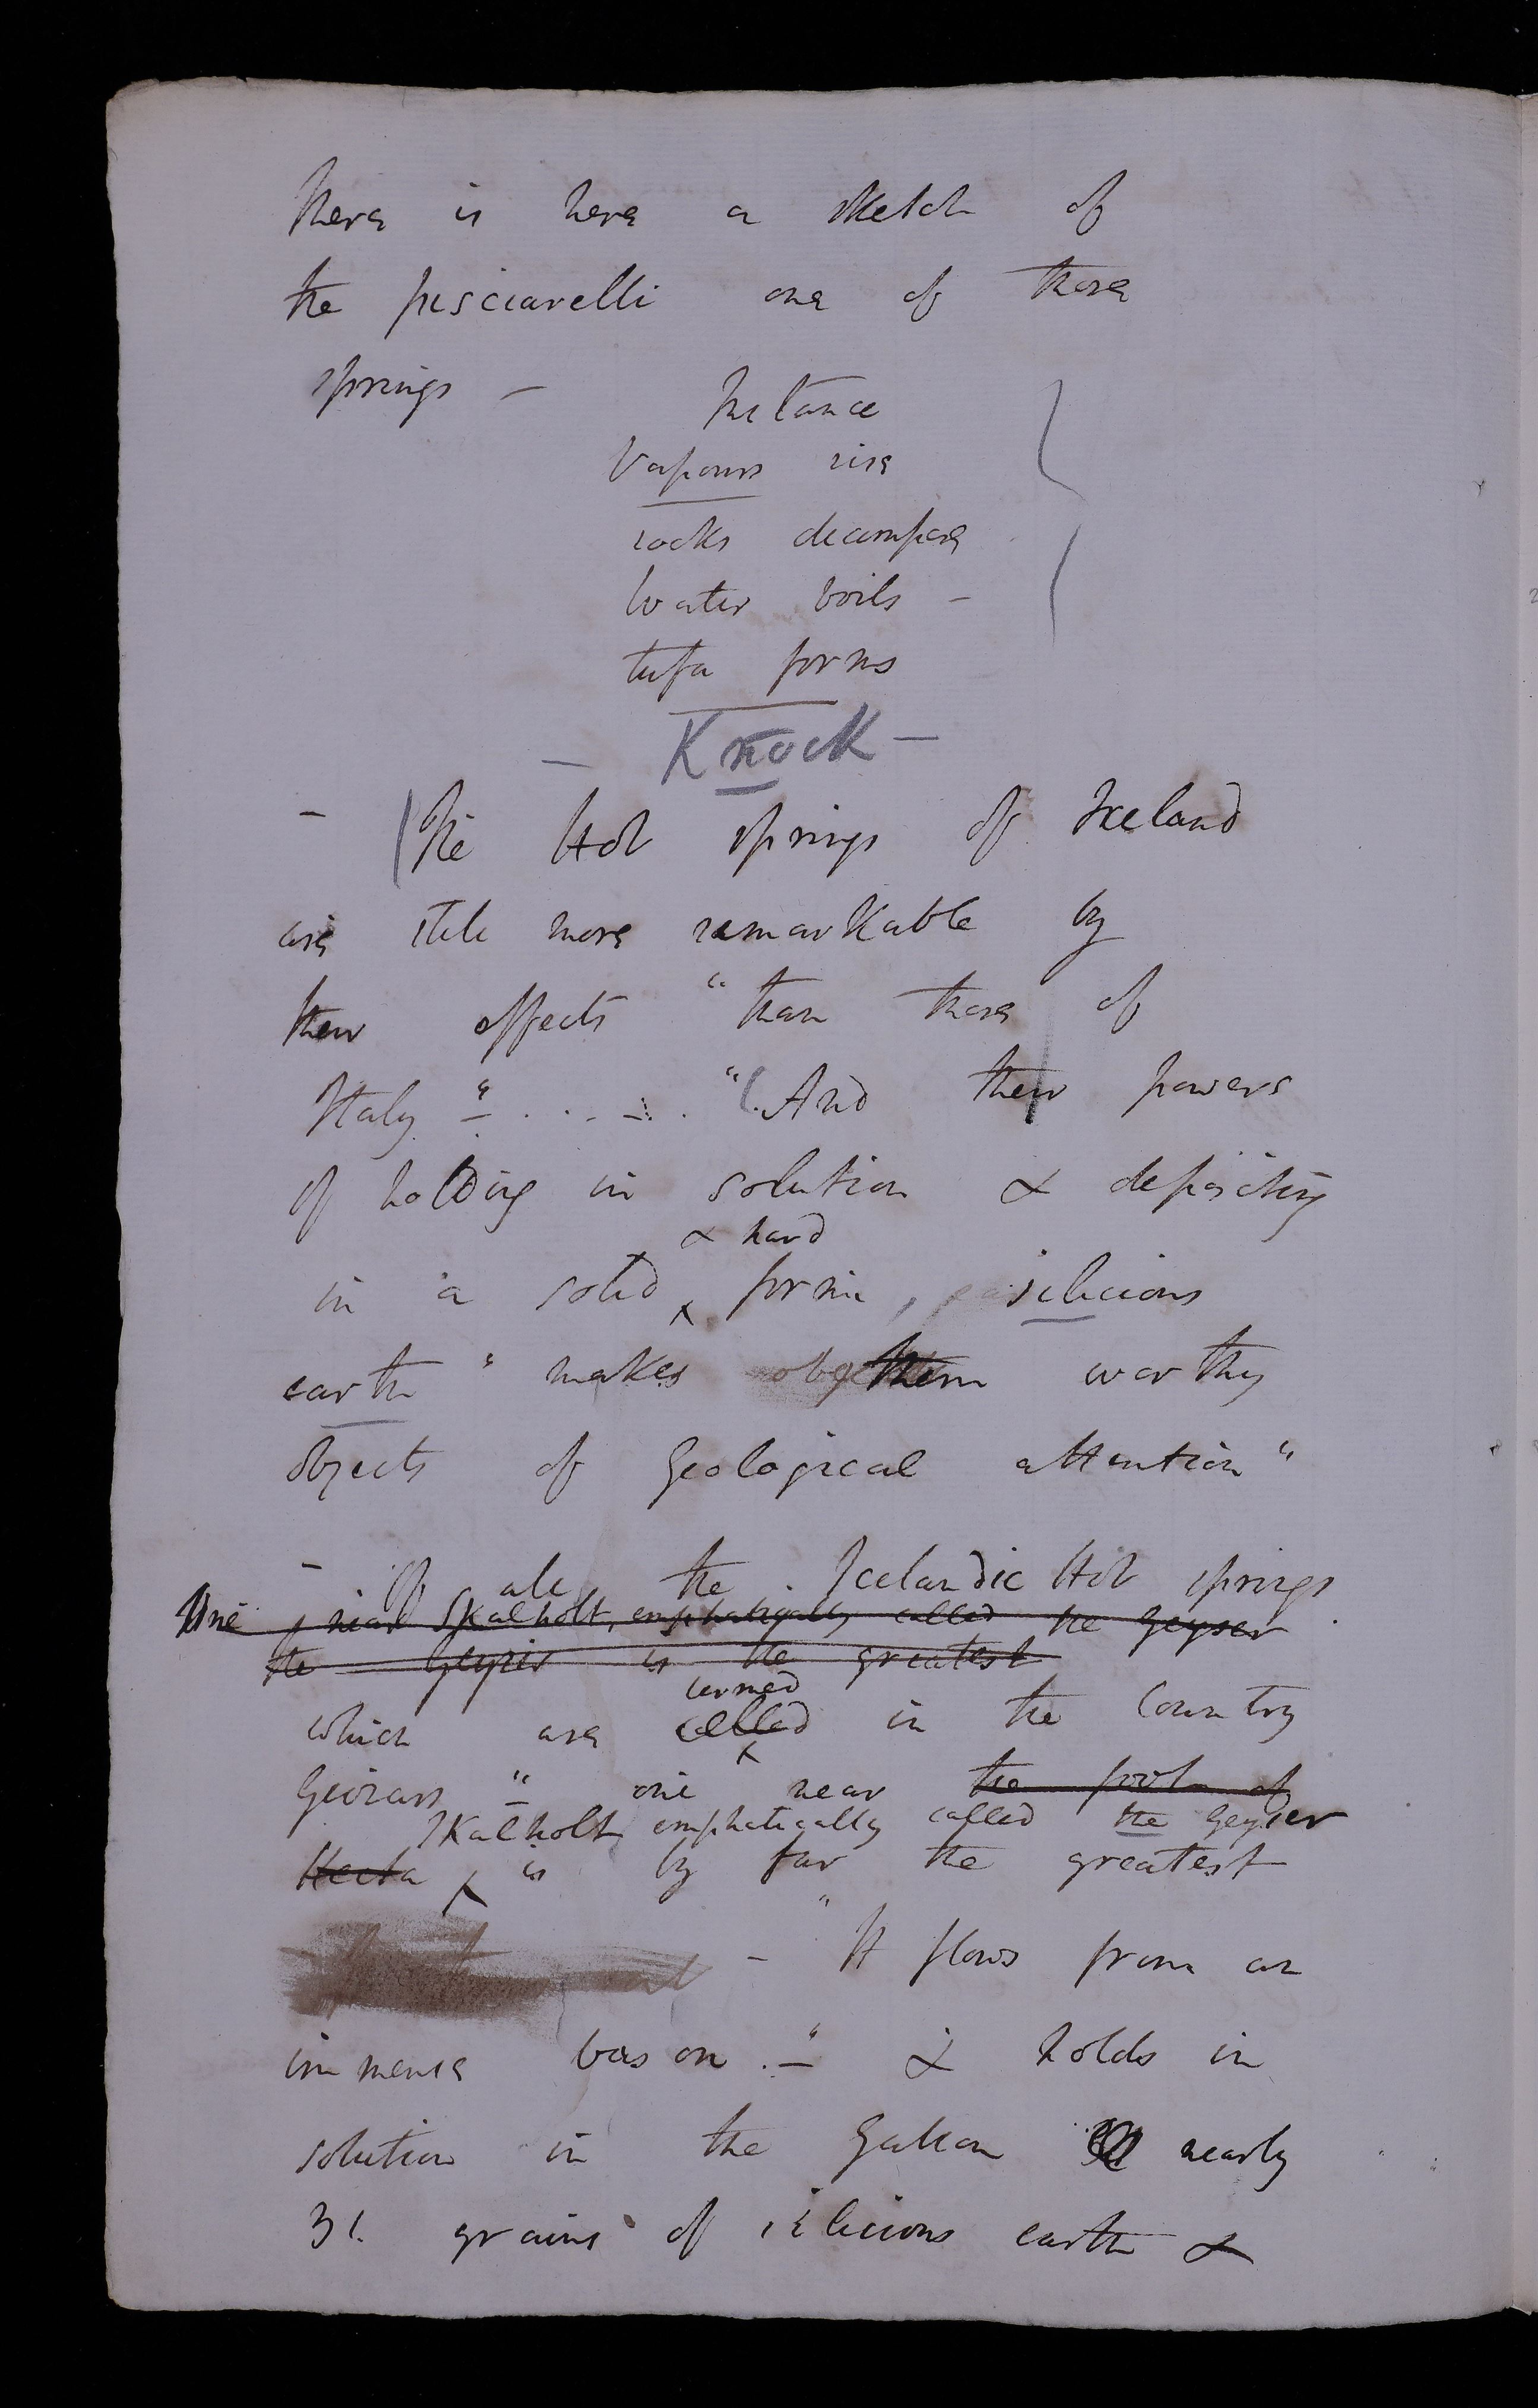 There is here a sketch of
the pisciarelli one of these
springs –
Instance
Vapours rise
rocks decompose
Water boils –
tufa forms
– Knock –
– The Hot springs of Iceland
are still more remarkable by
their effects "than those of
Italy" – . . . . . "(And their powers
of holding in solution & depositing
& hard
in a solid form, silicious
earth" makes them worthy
objects of Geological attention"
– Of all the Icelandic Hot springs
One near Skalholt, emphatically called the Geyser
the Geyser is the greatest
termed
which are called in the Country
Geizers " one near the foot of
Skalholt emphatically called the Geyser
Hecla is by far the greatest
– "It flows from an
immense bason. –" & holds in
solution in the Gallon nearly
31. grains of silicious earth &